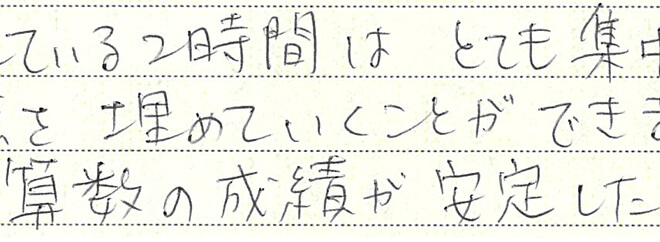 ている2時間は とても集中
を埋めていくことができま
算数の成績が安定した